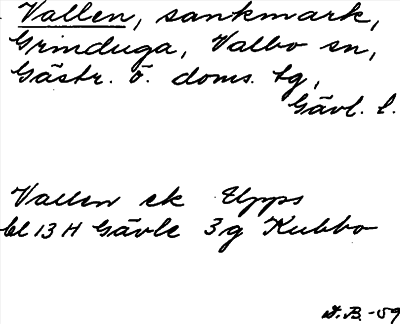 Vallen, sankmark,
Grinduga, Valbo sn,
Gästr. ö. doms. tg,
Gävl. l.
Vallen ek Upps
bl 13 H Gävle 3g Kubbo
D.B. -59